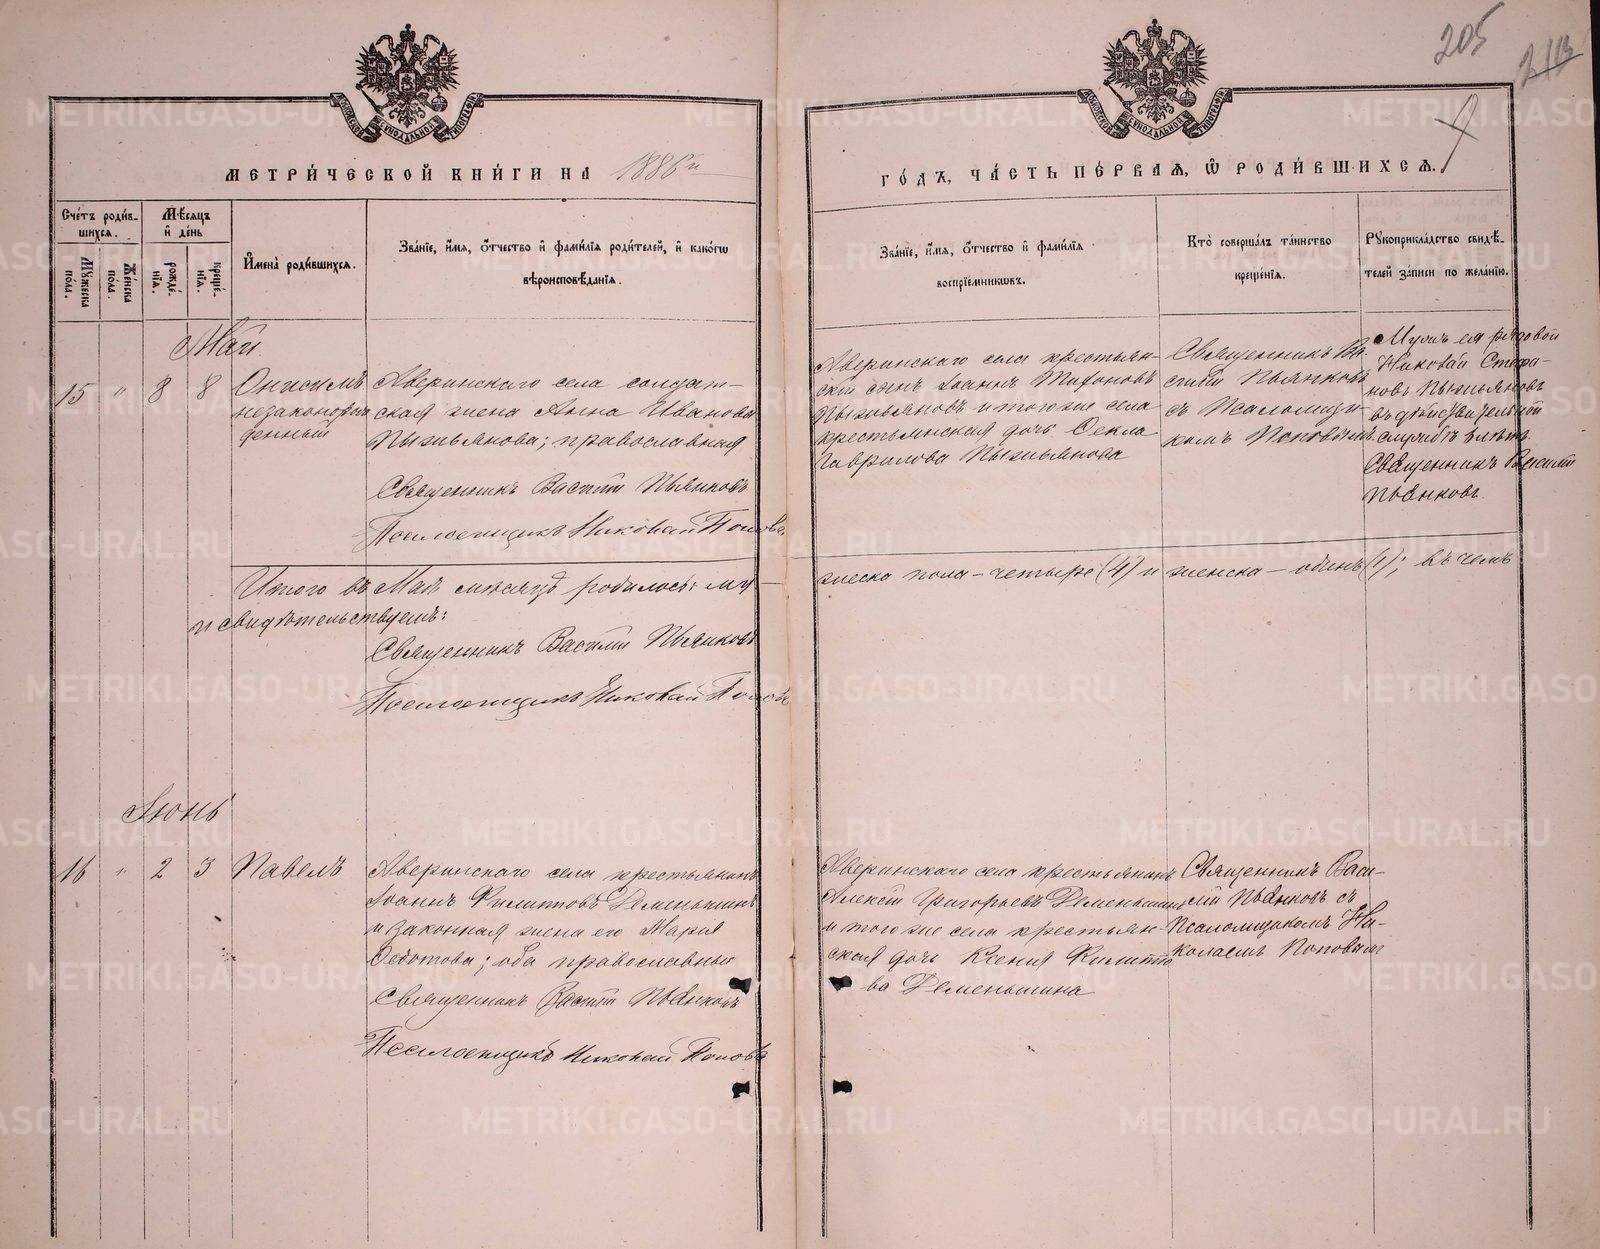 205
213
МЕТРИ́ЧЕСКОЙ КНИ́ГИ НА 1886 й
ГО́ДЪ, ЧА́СТЬ ПЕ́РВАѦ, Ѡ҆ РОДИ́ВШИХСѦ.
Сче́тъ роди́в-
шихсѧ.
Мѣ́сѧцъ
и҆ де́нь
Му́жеска по́ла.
Же́нска по́ла.
рожде́нїѧ.
креще́нїѧ.
И҆мена̀ роди́вшихсѧ.
Зва́нїе, и҆́мѧ, ѻ҆́тчество и҆ фами́лїѧ роди́телей, и҆ како́гѡ
вѣроисповѣ́данїѧ.
Зва́нїе, и҆́мѧ, ѻ҆́тчество и҆ фами́лїѧ
воспрїе́мникѡвъ.
Кто̀ соверша́лъ та́инство
креще́нїѧ.
Рꙋкоприкла́дство свидѣ́-
телей за́писи по жела́нїю.
Май
15 " 8 8
Онисимъ
незаконорож
денный
Аверинскаго села солдат-
ская жена Анна Иванова
Пыжьянова; православная
Священникъ Василій Пьянковъ
Псаломщикъ Николай Поповъ
Аверинскаго села крестьян-
скій сынъ Іоаннъ Тихоновъ
Пыжьяновъ и того же села
крестьянская дочь Ѳекла
Гаврилова Пыжьянова
Священникъ Ва-
силій Пьянковъ
съ Псаломщи-
комъ Поповымъ
Мужъ ея рядовой
Николай Стефа-
новъ Пыжьяновъ
въ дѣйствительной
службѣ
Священникъ Василій
Пьянковъ
Итого въ Май мѣсяцѣ родилось: му-
жеска пола – четыре (4) и женска – одинъ (1); въ чемъ
и свидѣтельствуемъ:
Священникъ Василій Пьянковъ
Псаломщикъ Николай Поповъ
Іюнь
16 " 2 3
Павелъ
Аверинскаго села крестьянинъ
Іоаннъ Филипповъ Деменьшинъ
и законная жена его Марія
Ѳедотова; оба православные
Священникъ Василій Пьянковъ
Псаломщикъ Николай Поповъ
Аверинскаго села крестьянинъ
Алексій Григорьевъ Деменьшинъ
и того же села крестьян-
ская дочь Ксенія Филиппо
ва Деменьшина
Священникъ Васи-
лій Пьянковъ съ
Псаломщикомъ Ни-
колаемъ Поповымъ
METRIKI.GASO-URAL.RU